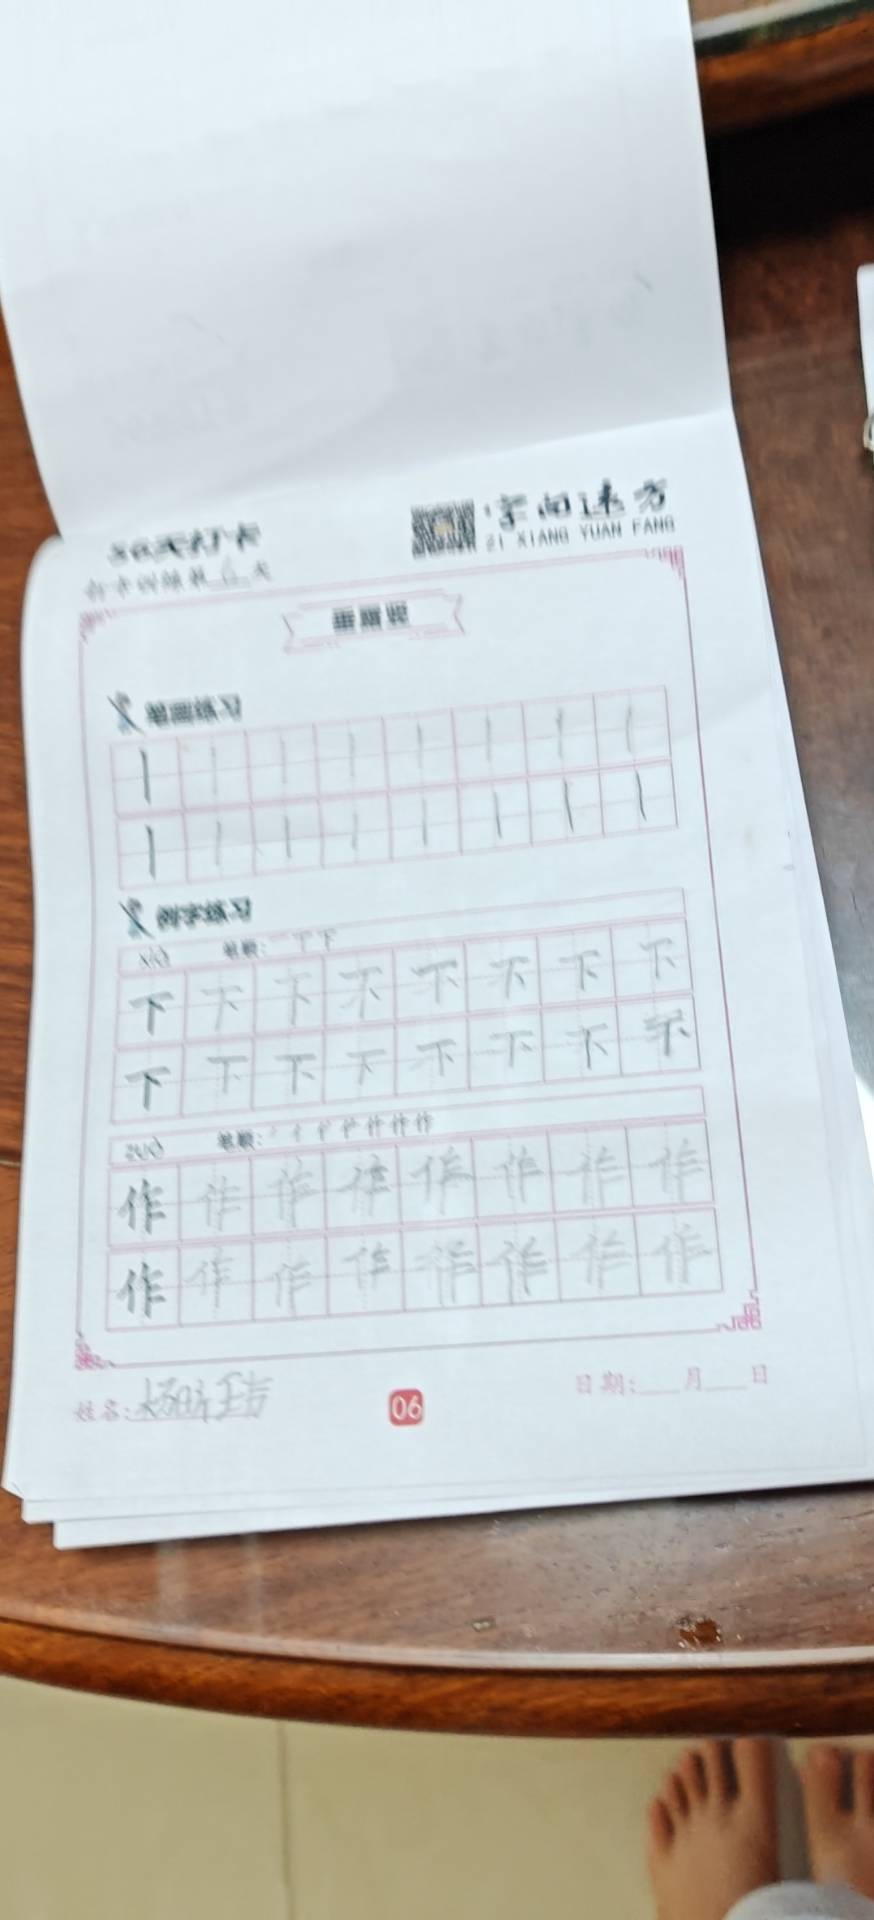 56天打卡
字向远方
ZI XIANG YUAN FANG
垂露竖
笔画练习
例字练习
xià 笔顺: 一 丅 下
下 下 下 下 下 下 下 下
下 下 下 下 下 下 下
zuò 笔顺:
作 作 作 作 作 作 作 作
作 作 作 作 作 作 作 作
姓名:
06
日期:____月____日